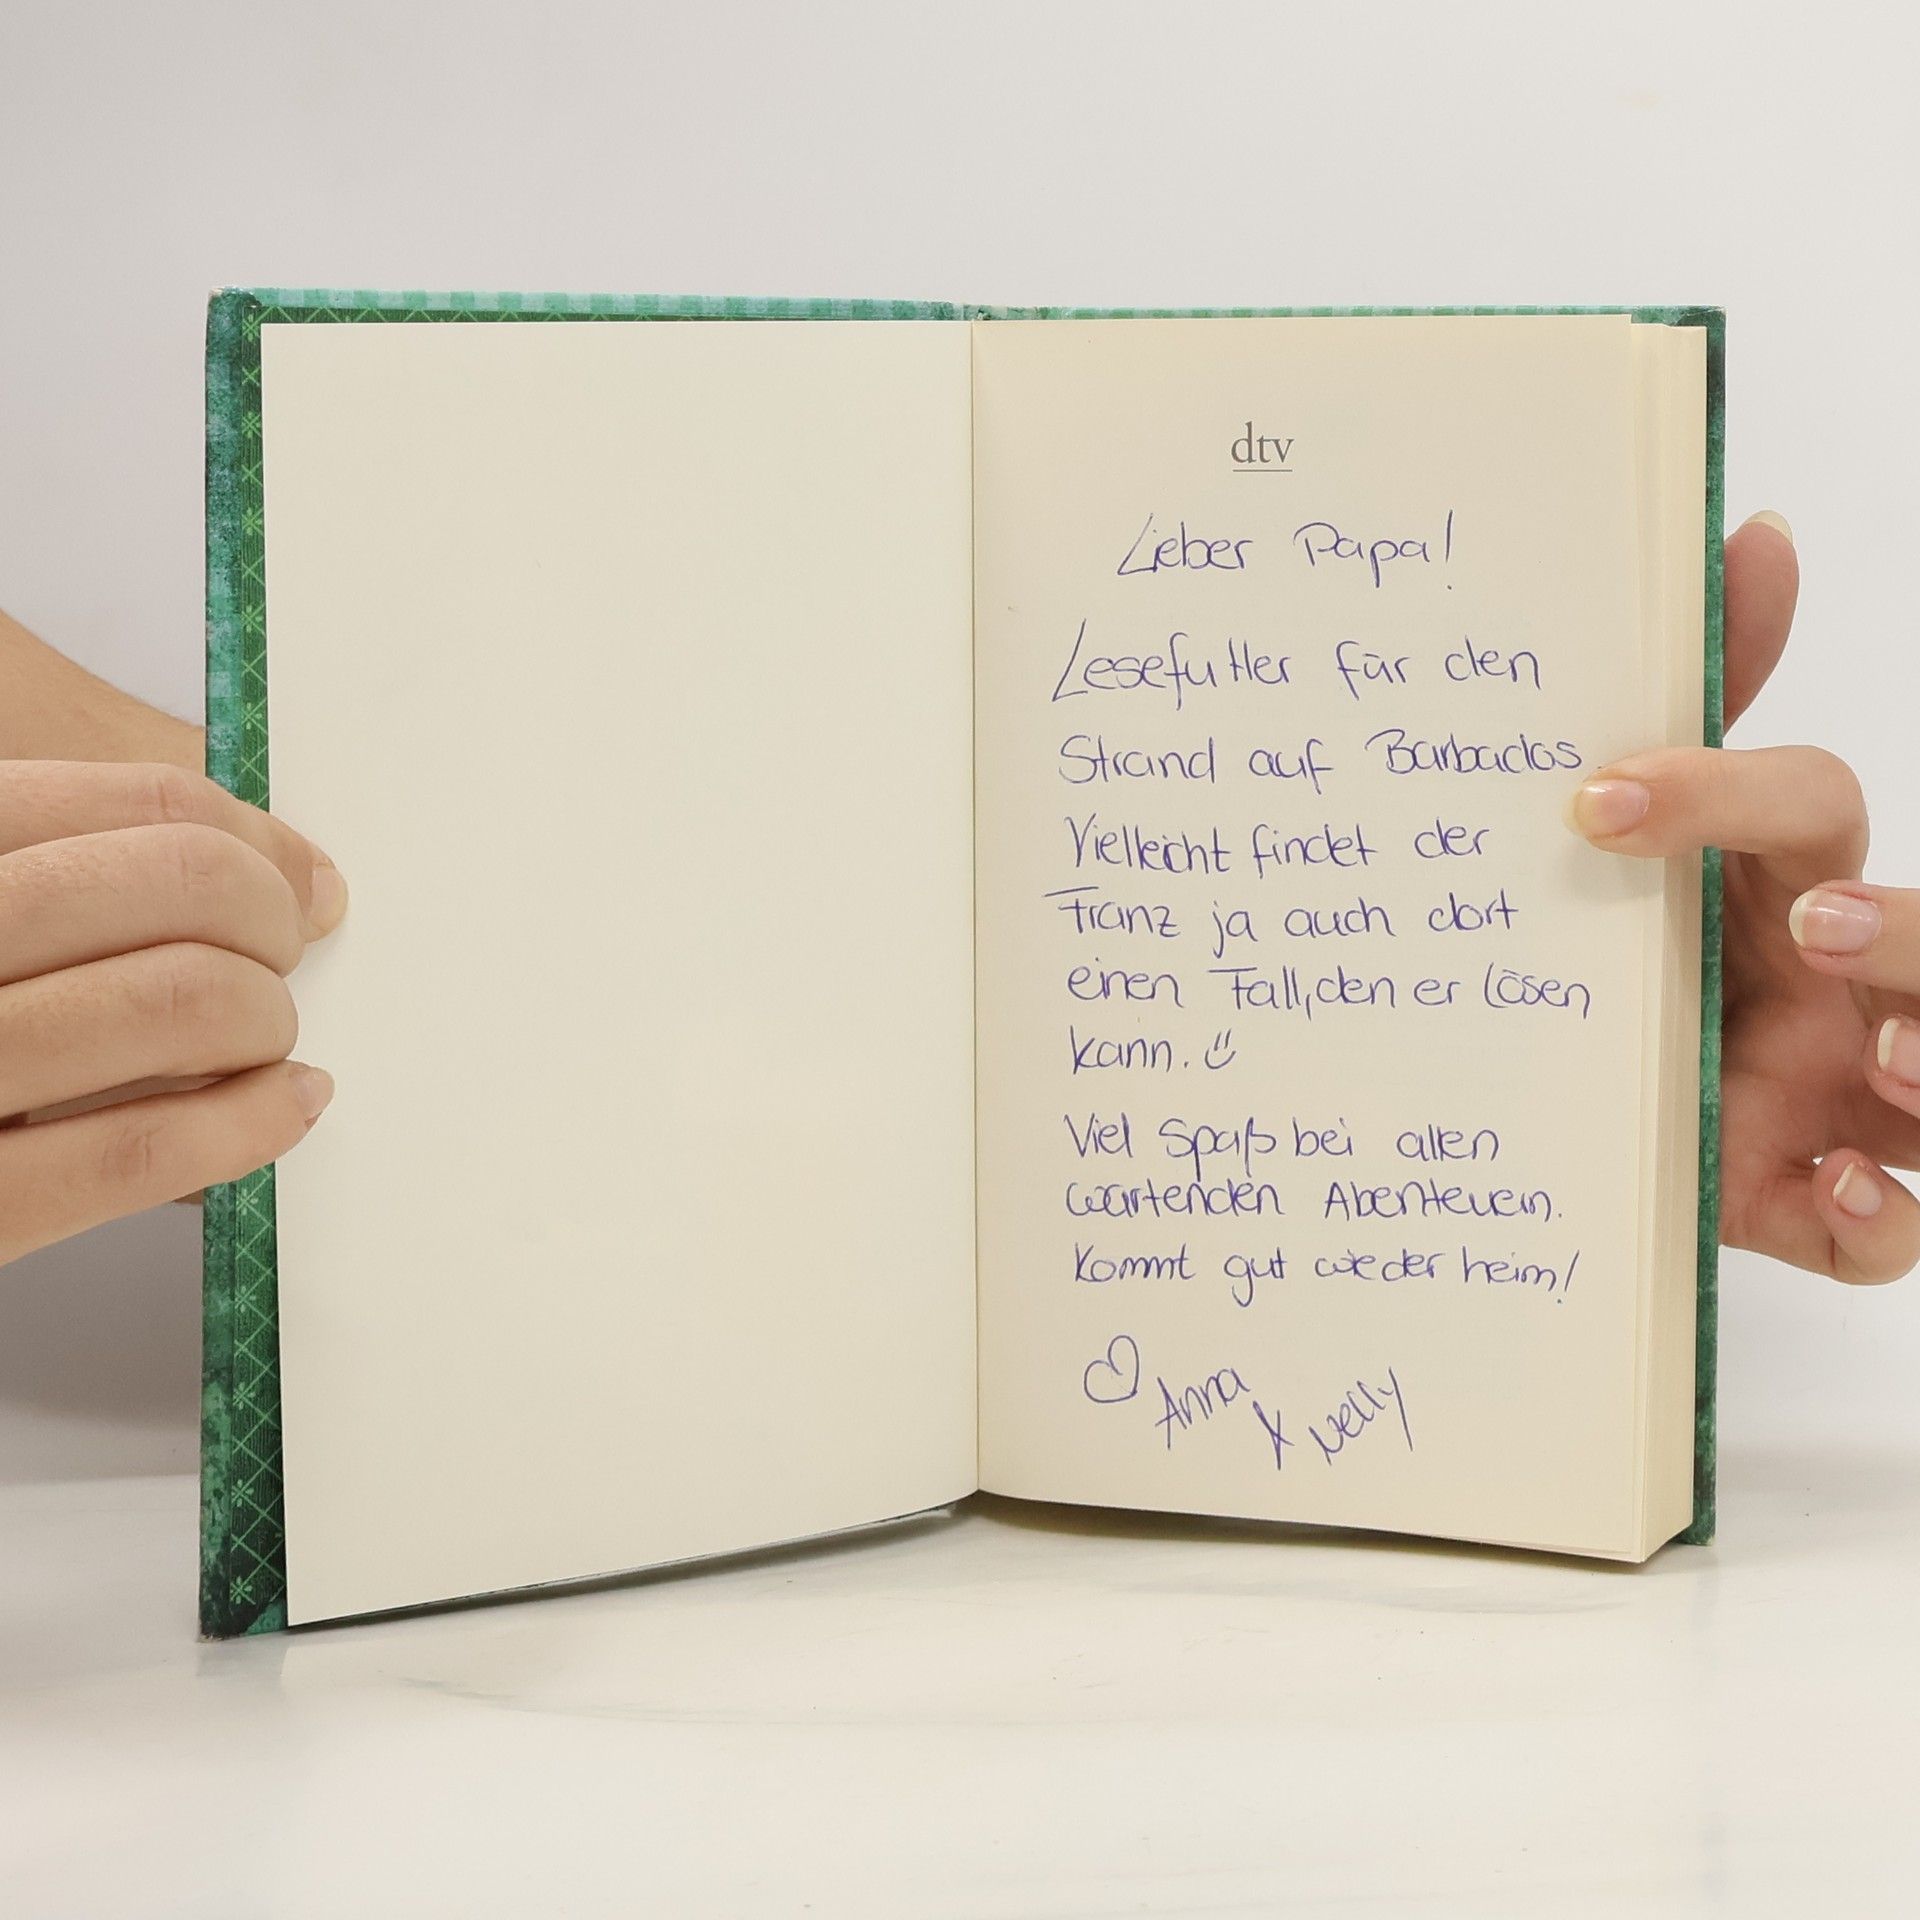 dtv
Lieber Papa!
Lesefutter für den
Strand auf Barbados.
Vielleicht findet der
Franz ja auch dort
einen Fall, den er lösen
kann. ":)
Viel Spaß bei allen
wartenden Abenteuern.
Kommt gut wieder heim!
♡ Anna & Nelly